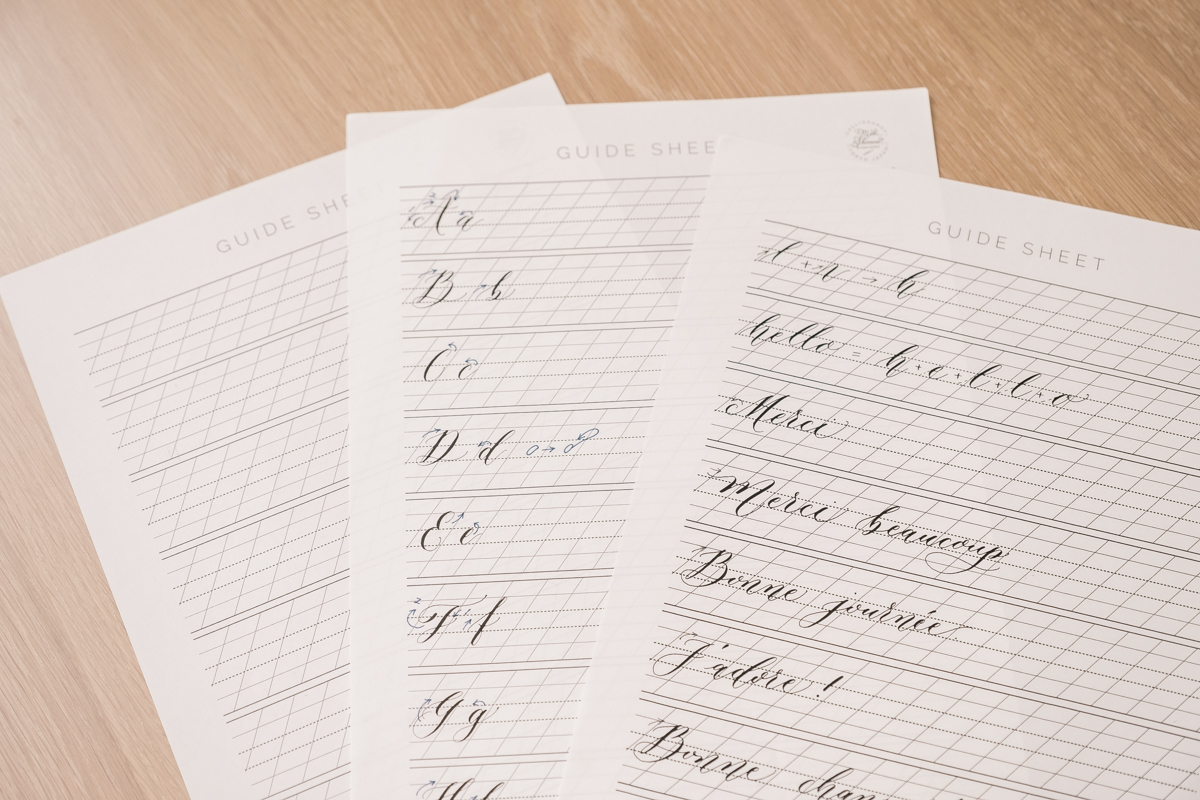 GUIDE SHE
GUIDE SHEE
A a
B b
C c
D d o → d
E e
F f
G g
H h
GUIDE SHEET
l + n → h
hello = h + e + l + l + o
Merci
Merci beaucoup
Bonne journée
J'adore !
Bonne chan